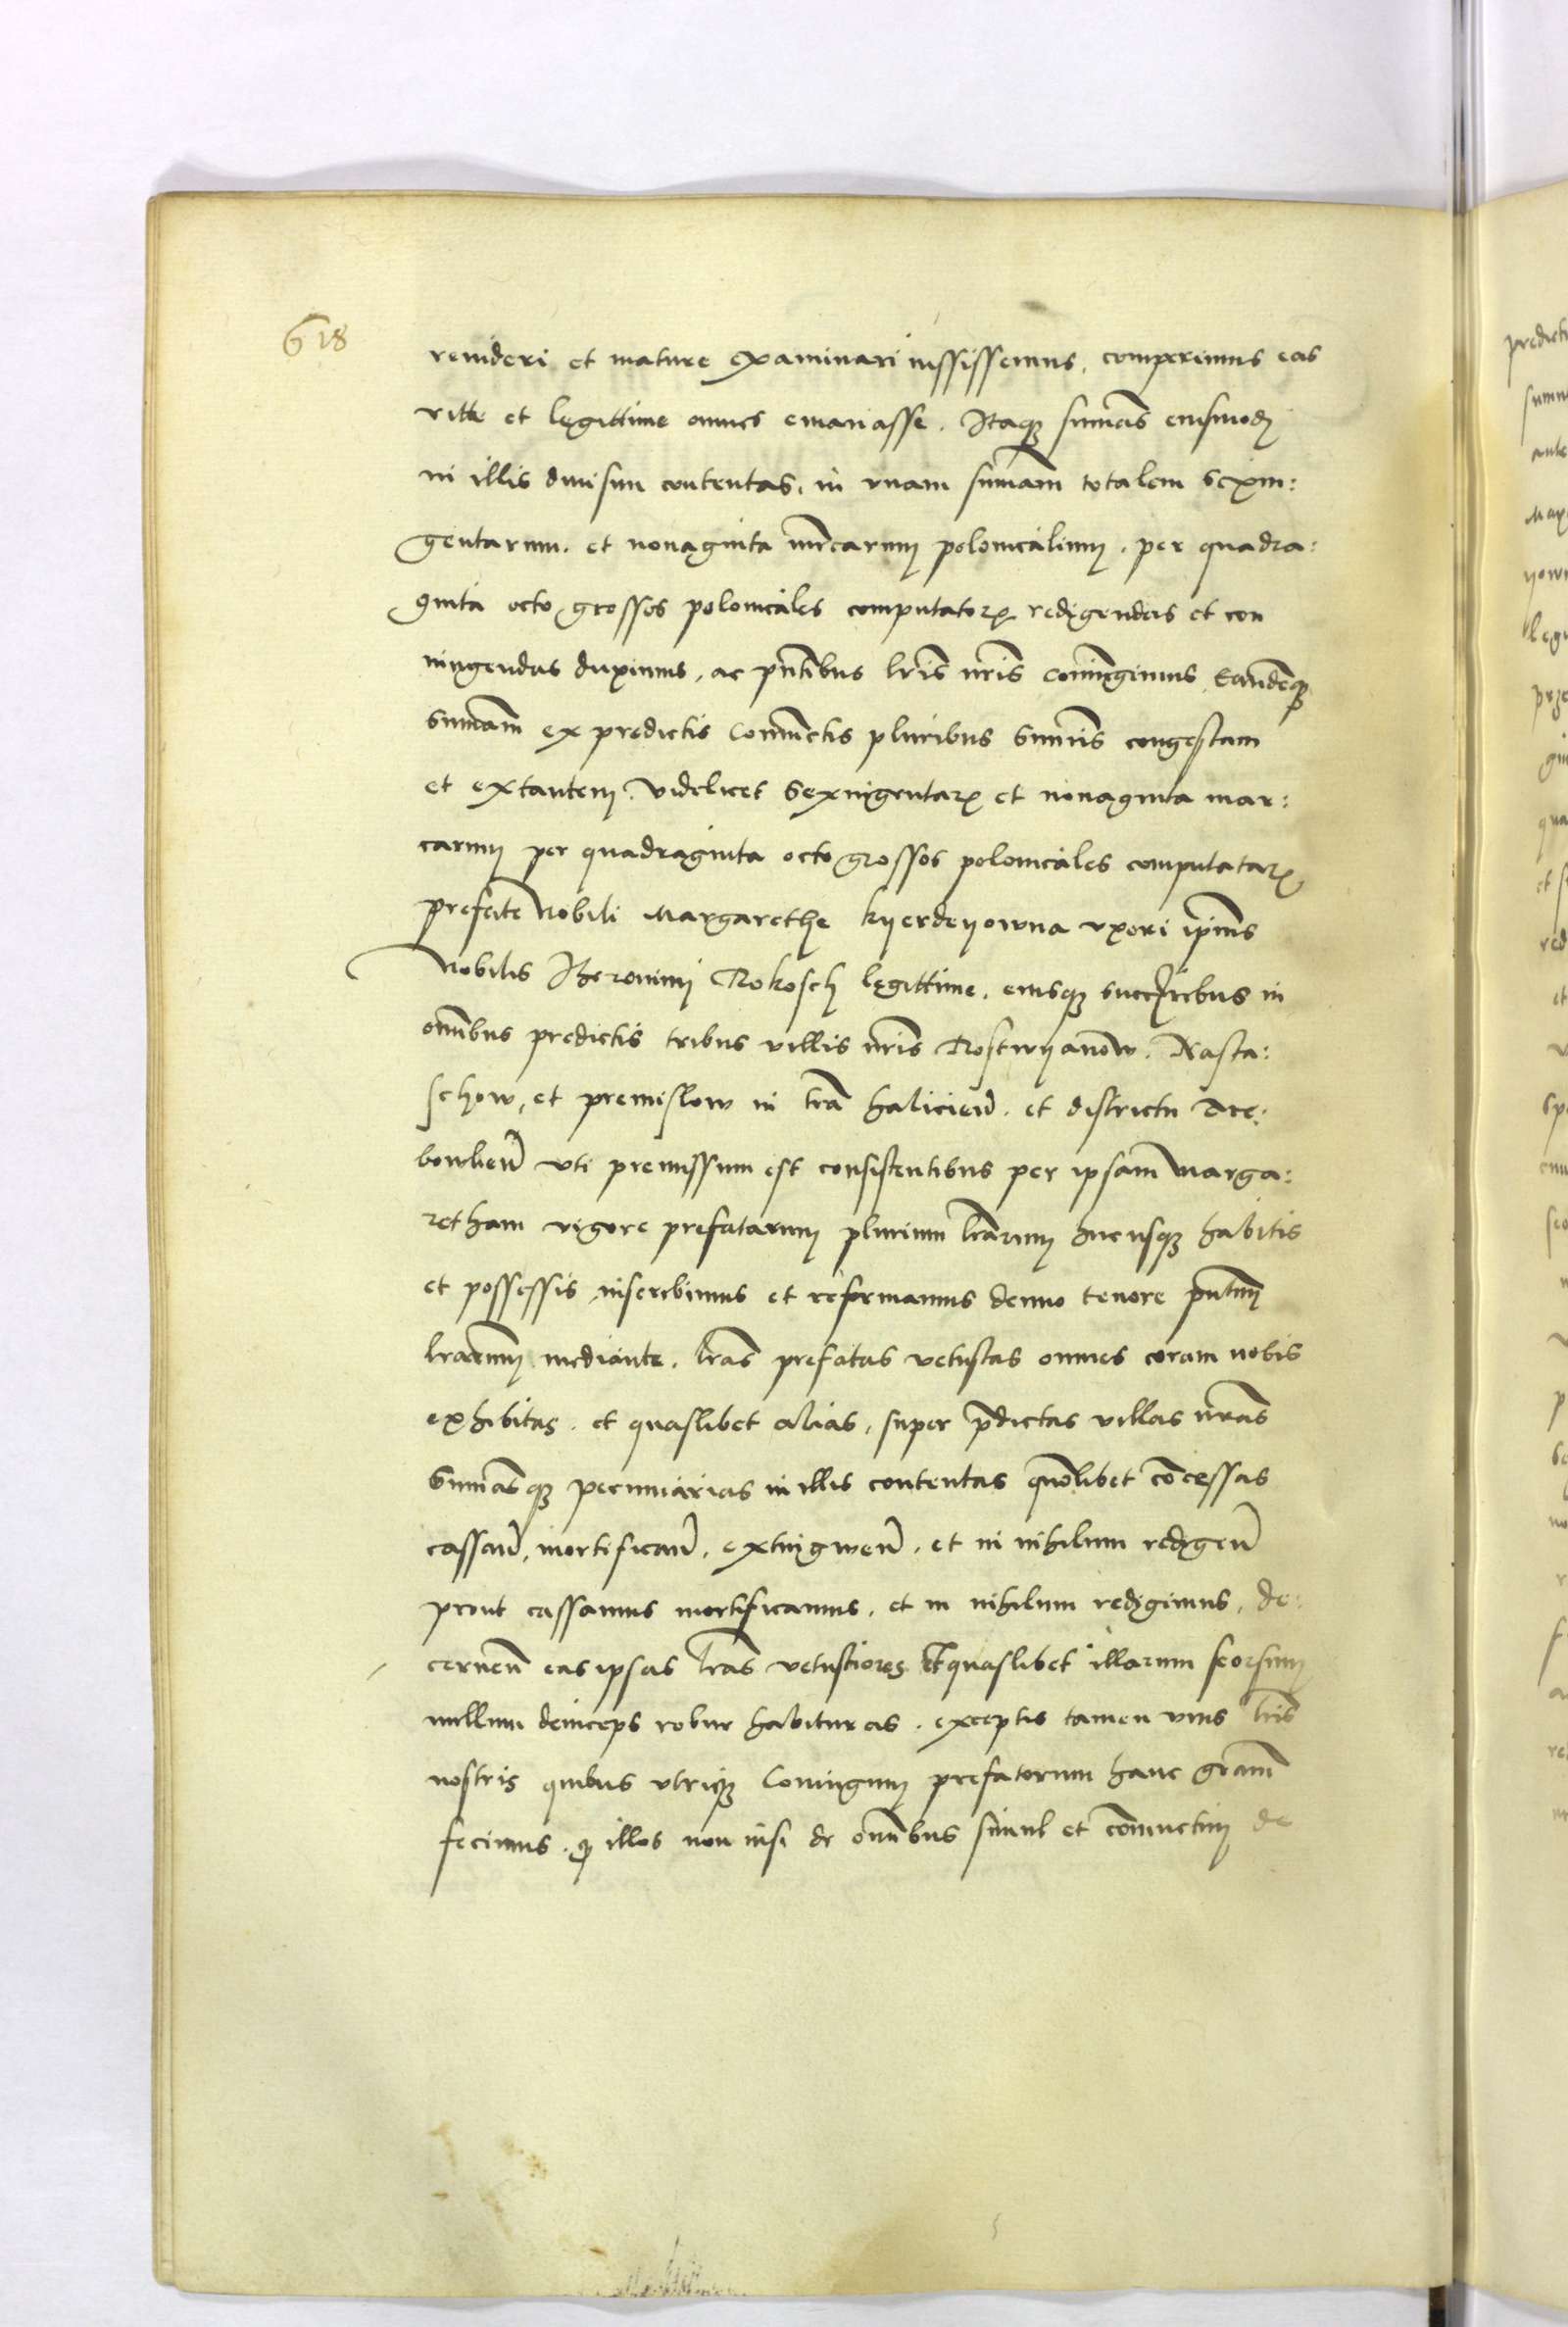 618
revideri et mature examinari iussissemus, comperimus eas
ritte et legittime omnes emanasse. Itaq sumas eiusmodi
in illis divisim contentas, in vnam sumam totalem sexin:
gentarum. et nonaginta mrcarum polonicalium. per quadra:
ginta octo grossos polonicales computatorum redigendas et con
iungendas duximus, ac pntibus lris nris coniungimus Eandemq
Sumam ex predictis coniunctis pluribus sumis congestam
et extantem. videlicet sexingentarum et nonaginta mar:
carum per quadraginta octo grossos polonicales computatarum
prefate Nobili Margarethe kyerdeyowna vxori ipius
Nobilis Iheronimi Rokosch legittime, eiusq successoribus in
omnibus predictis tribus villis nris Rostwyanow. Nasta:
schow, et premislow in tra halicien. et districtu Tre:
bowlien vti premissum est consistentibus per ipsam Marga:
retham vigore prefatarum plurium lrarum hucusq habitis
et possessis inscribimus et reformamus denuo tenore pntium
lrarum mediante. lras prefatas vetustas omnes coram nobis
exhibitas. et quaslibet alias, super pdictas villas nras
Sumasq pecuniarias in illis contentas quolibet concessas
cassan, mortifican, extingwen, et in nihilum redigen
prout cassamus mortificamus, et in nihilum redigimus, de:
cernen eas ipsas lras vetustiores Et quaslibet illarum seorsum
nullum deinceps robur habituras. exceptis tamen vnis lris
nostris quibus vtriq Coniugum prefatorum hanc gratiam
fecimus. q illos non nisi de omnibus simul et coniunctim de